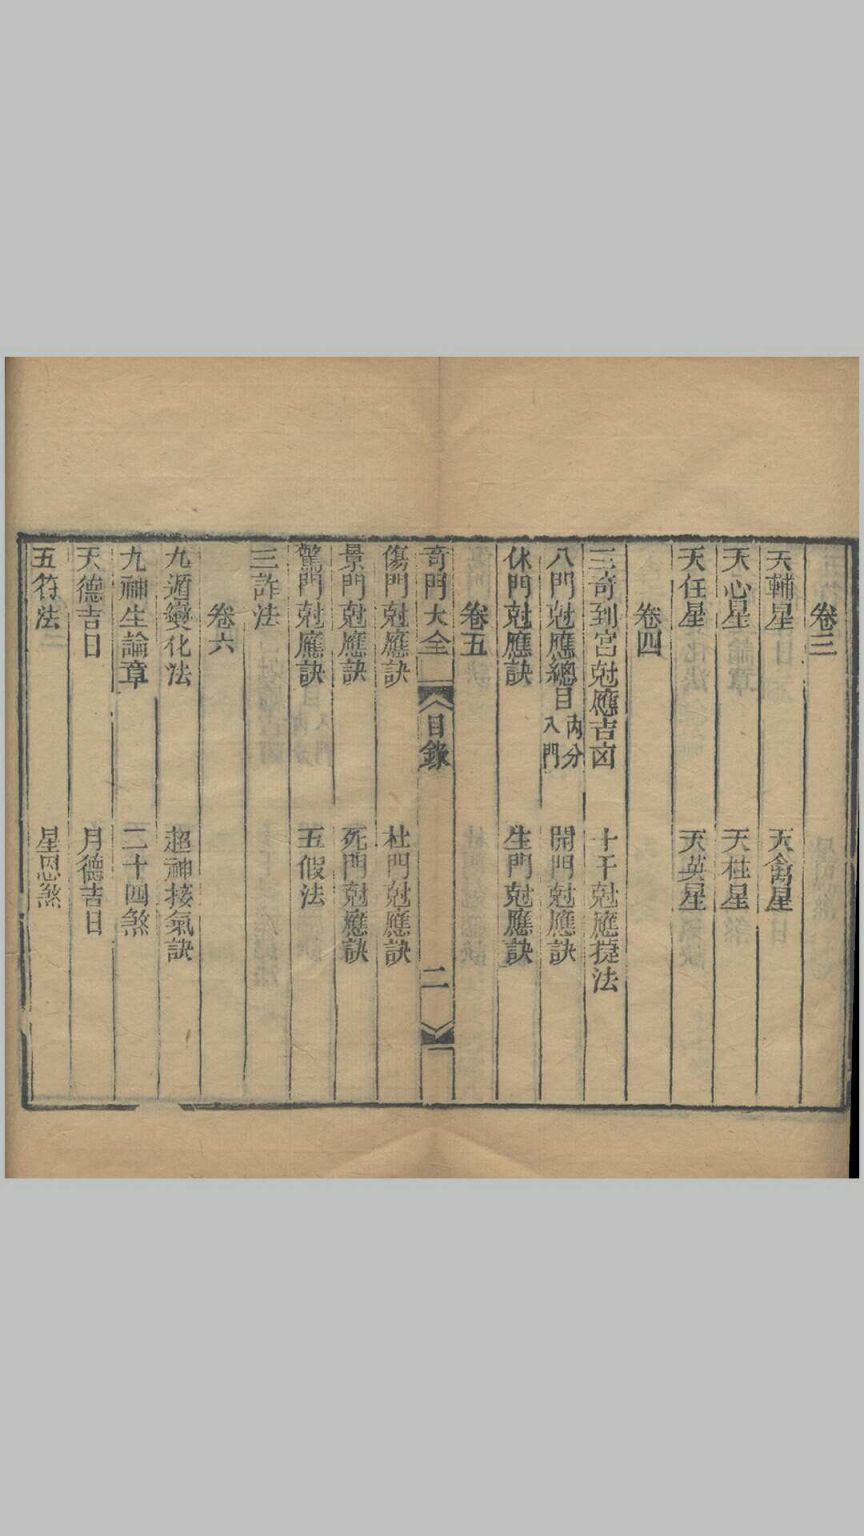 卷三
天輔星　天禽星
天心星　天柱星
天任星　天英星
卷四
三奇到宮尅應吉凶　十干尅應㨗法
八門尅應總目內分入門　開門尅應訣
休門尅應訣　生門尅應訣
卷五
奇門大全　目錄　二
傷門尅應訣　杜門尅應訣
景門尅應訣　死門尅應訣
驚門尅應訣　五假法
三詐法
卷六
九遁變化法　超神接氣訣
九神生論章　二十四煞
天德吉日　月德吉日
五符法　星恩煞